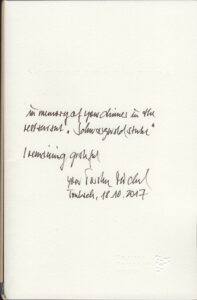 in memory of your dinner in the
restaurant "Schwarzwaldstube"
I remaining grateful
your Torsten Michel
Tonbach, 18.10.2017